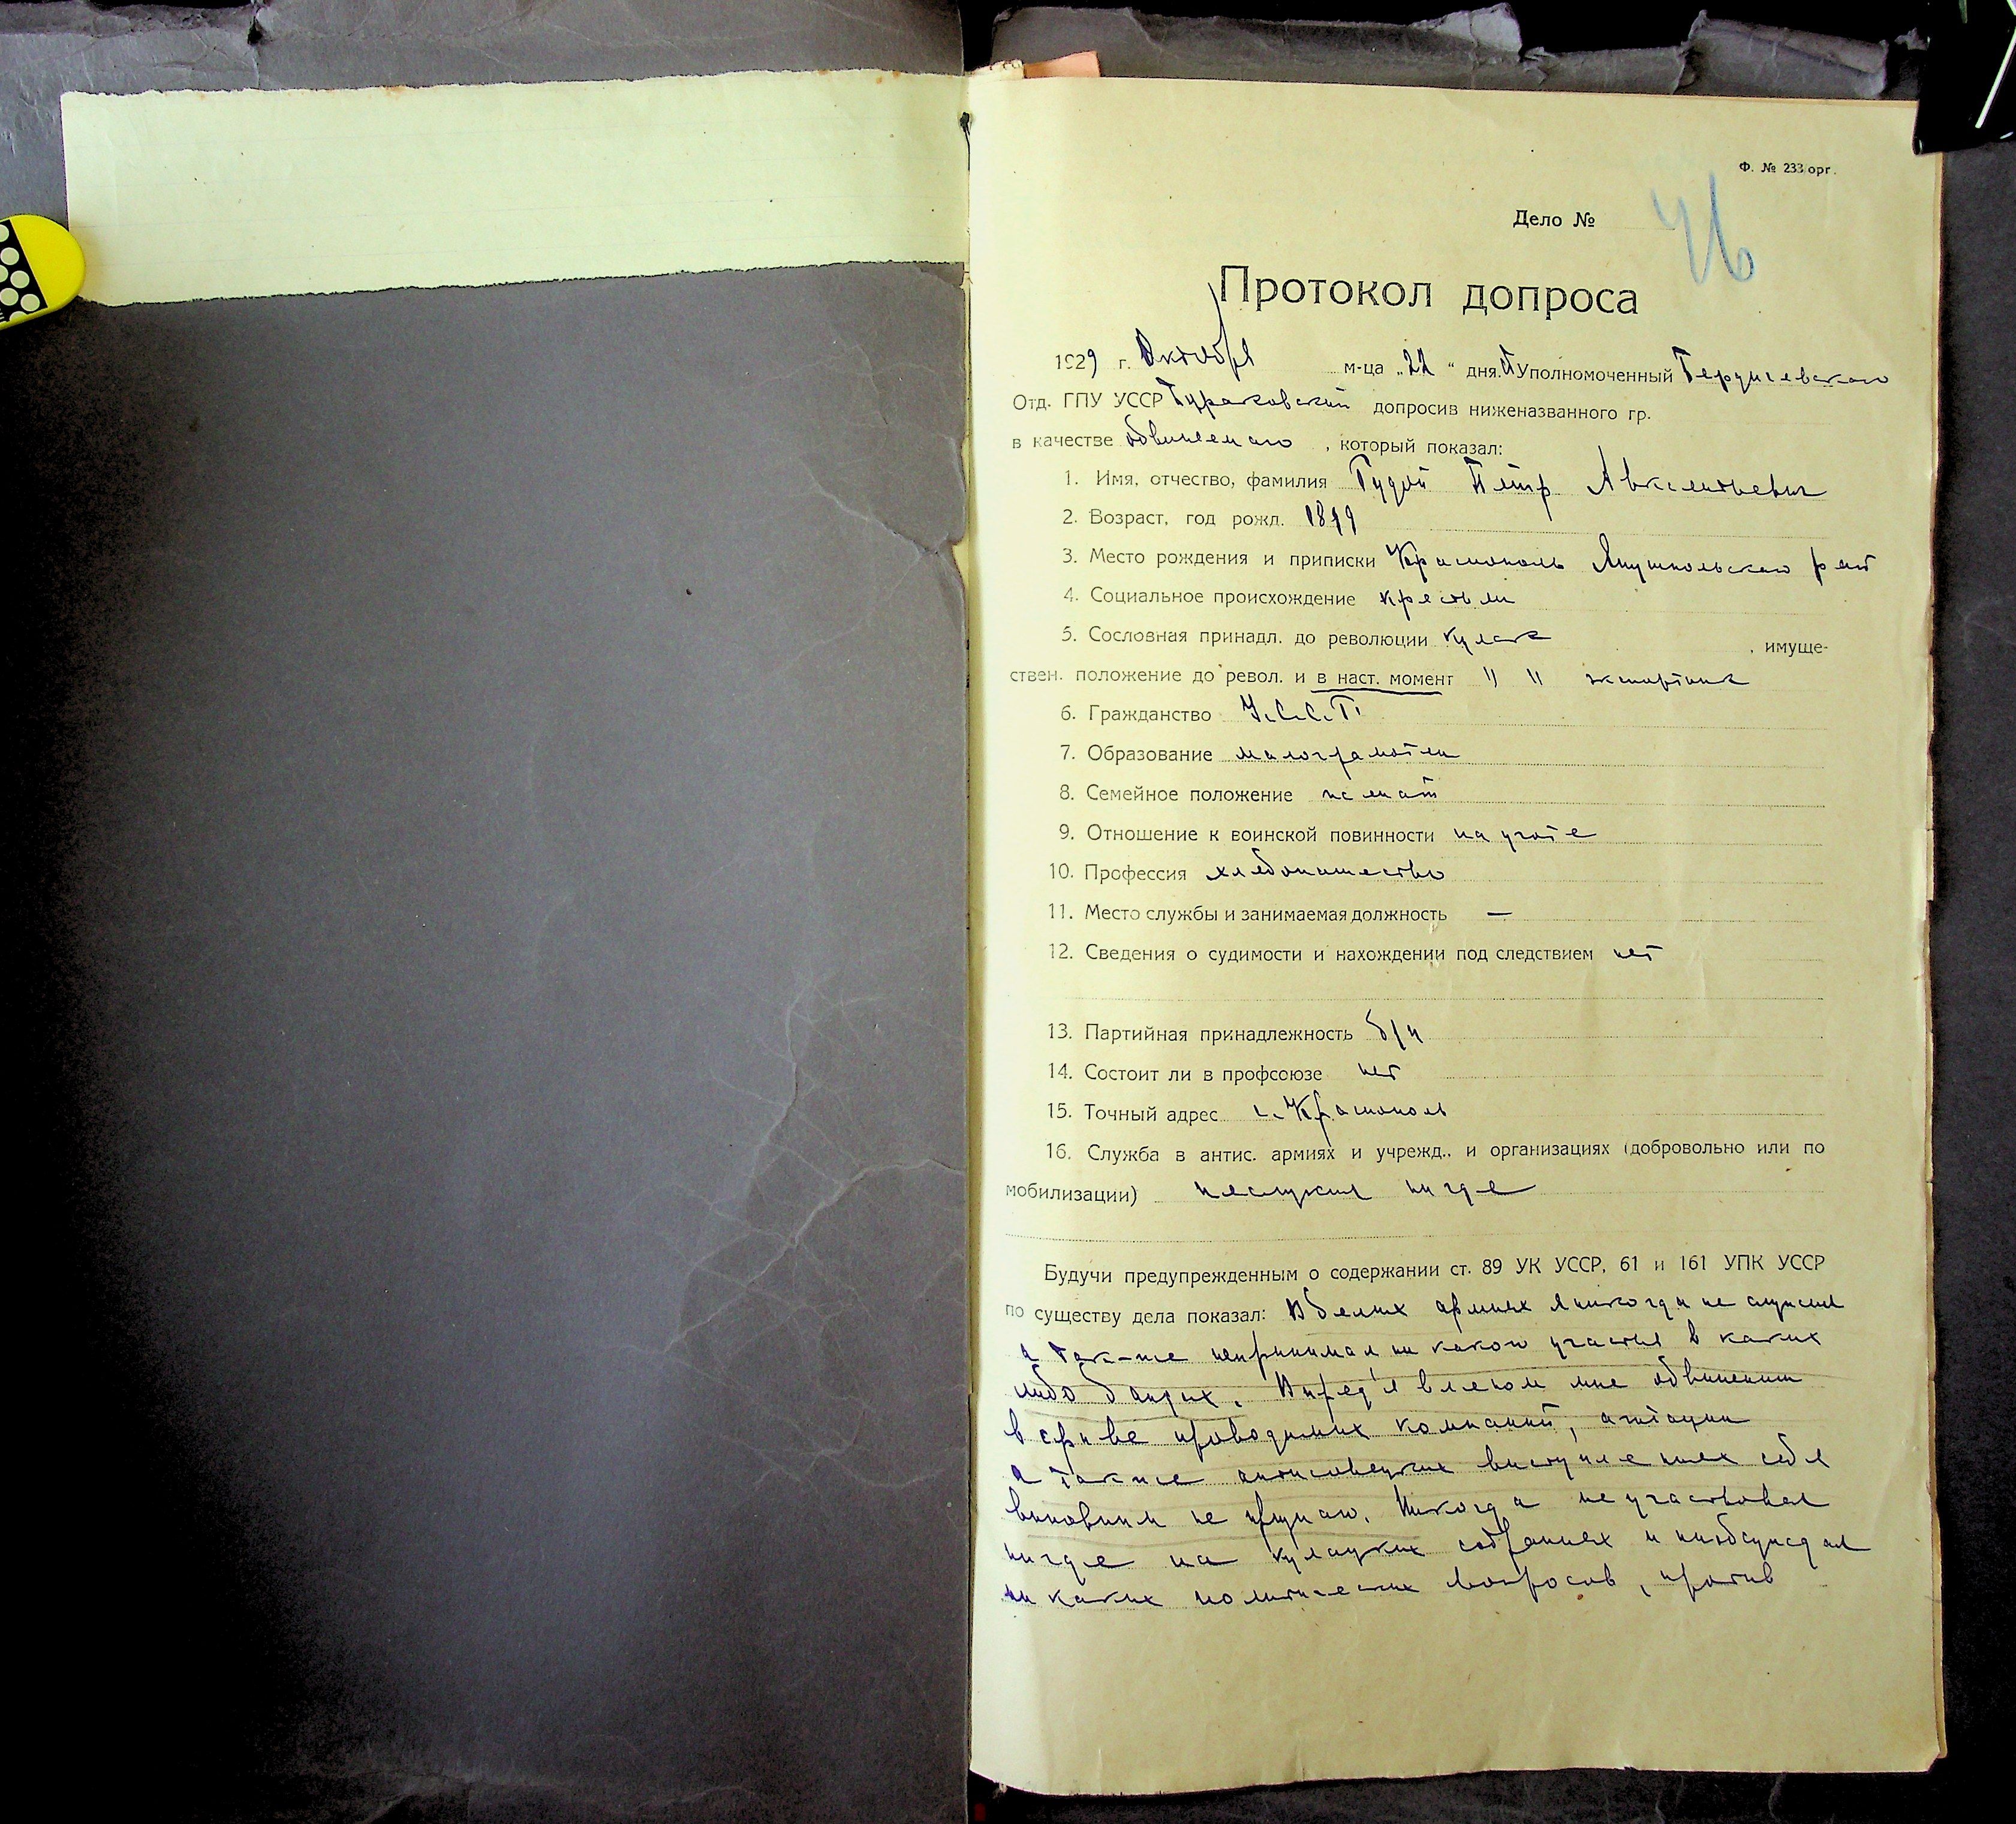 Ф. № 233 орг.
Дело №
46
Протокол допроса
1929 г. Октября м-ца „22“ дня. П Уполномоченный Бердичевского
Отд. ГПУ УССР Бураковский допросив ниженазванного гр.
в качестве обвиняемаго, который показал:
1. Имя, отчество, фамилия Гудзь Пётр Авксентьевич
2. Возраст, год рожд.
3. Место рождения и приписки Краснополь Янушпольскаго рай
4. Социальное происхождение крестьян
5. Сословная принадл. до революции кулак , имуще-
ствен. положение до револ. и в наст. момент " " экспертник
6. Гражданство У.С.С.Р.
7. Образование малограмотен
8. Семейное положение женат
9. Отношение к воинской повинности на учёте
10. Профессия хлебопашество
11. Место службы и занимаемая должность —
12. Сведения о судимости и нахождении под следствием нет
13. Партийная принадлежность б/п
14. Состоит ли в профсоюзе нет
15. Точный адрес с. Краснополь
16. Служба в антис. армиях и учрежд., и организациях (добровольно или по
мобилизации) неслужил нигде
Будучи предупрежденным о содержании ст. 89 УК УССР, 61 и 161 УПК УССР
по существу дела показал: В белых армиях я никогда не служил
а так-же непринимал ни какого участия в каких
либо бандах. В пред'явленом мне обвинении
в срыве проводимых компаний, агитации
а также антисоветских выступлениях себя
виновным не признаю. Никогда не участвовал
нигде на кулацких собраниях и необсуждал
ни каких политических вопросов, против